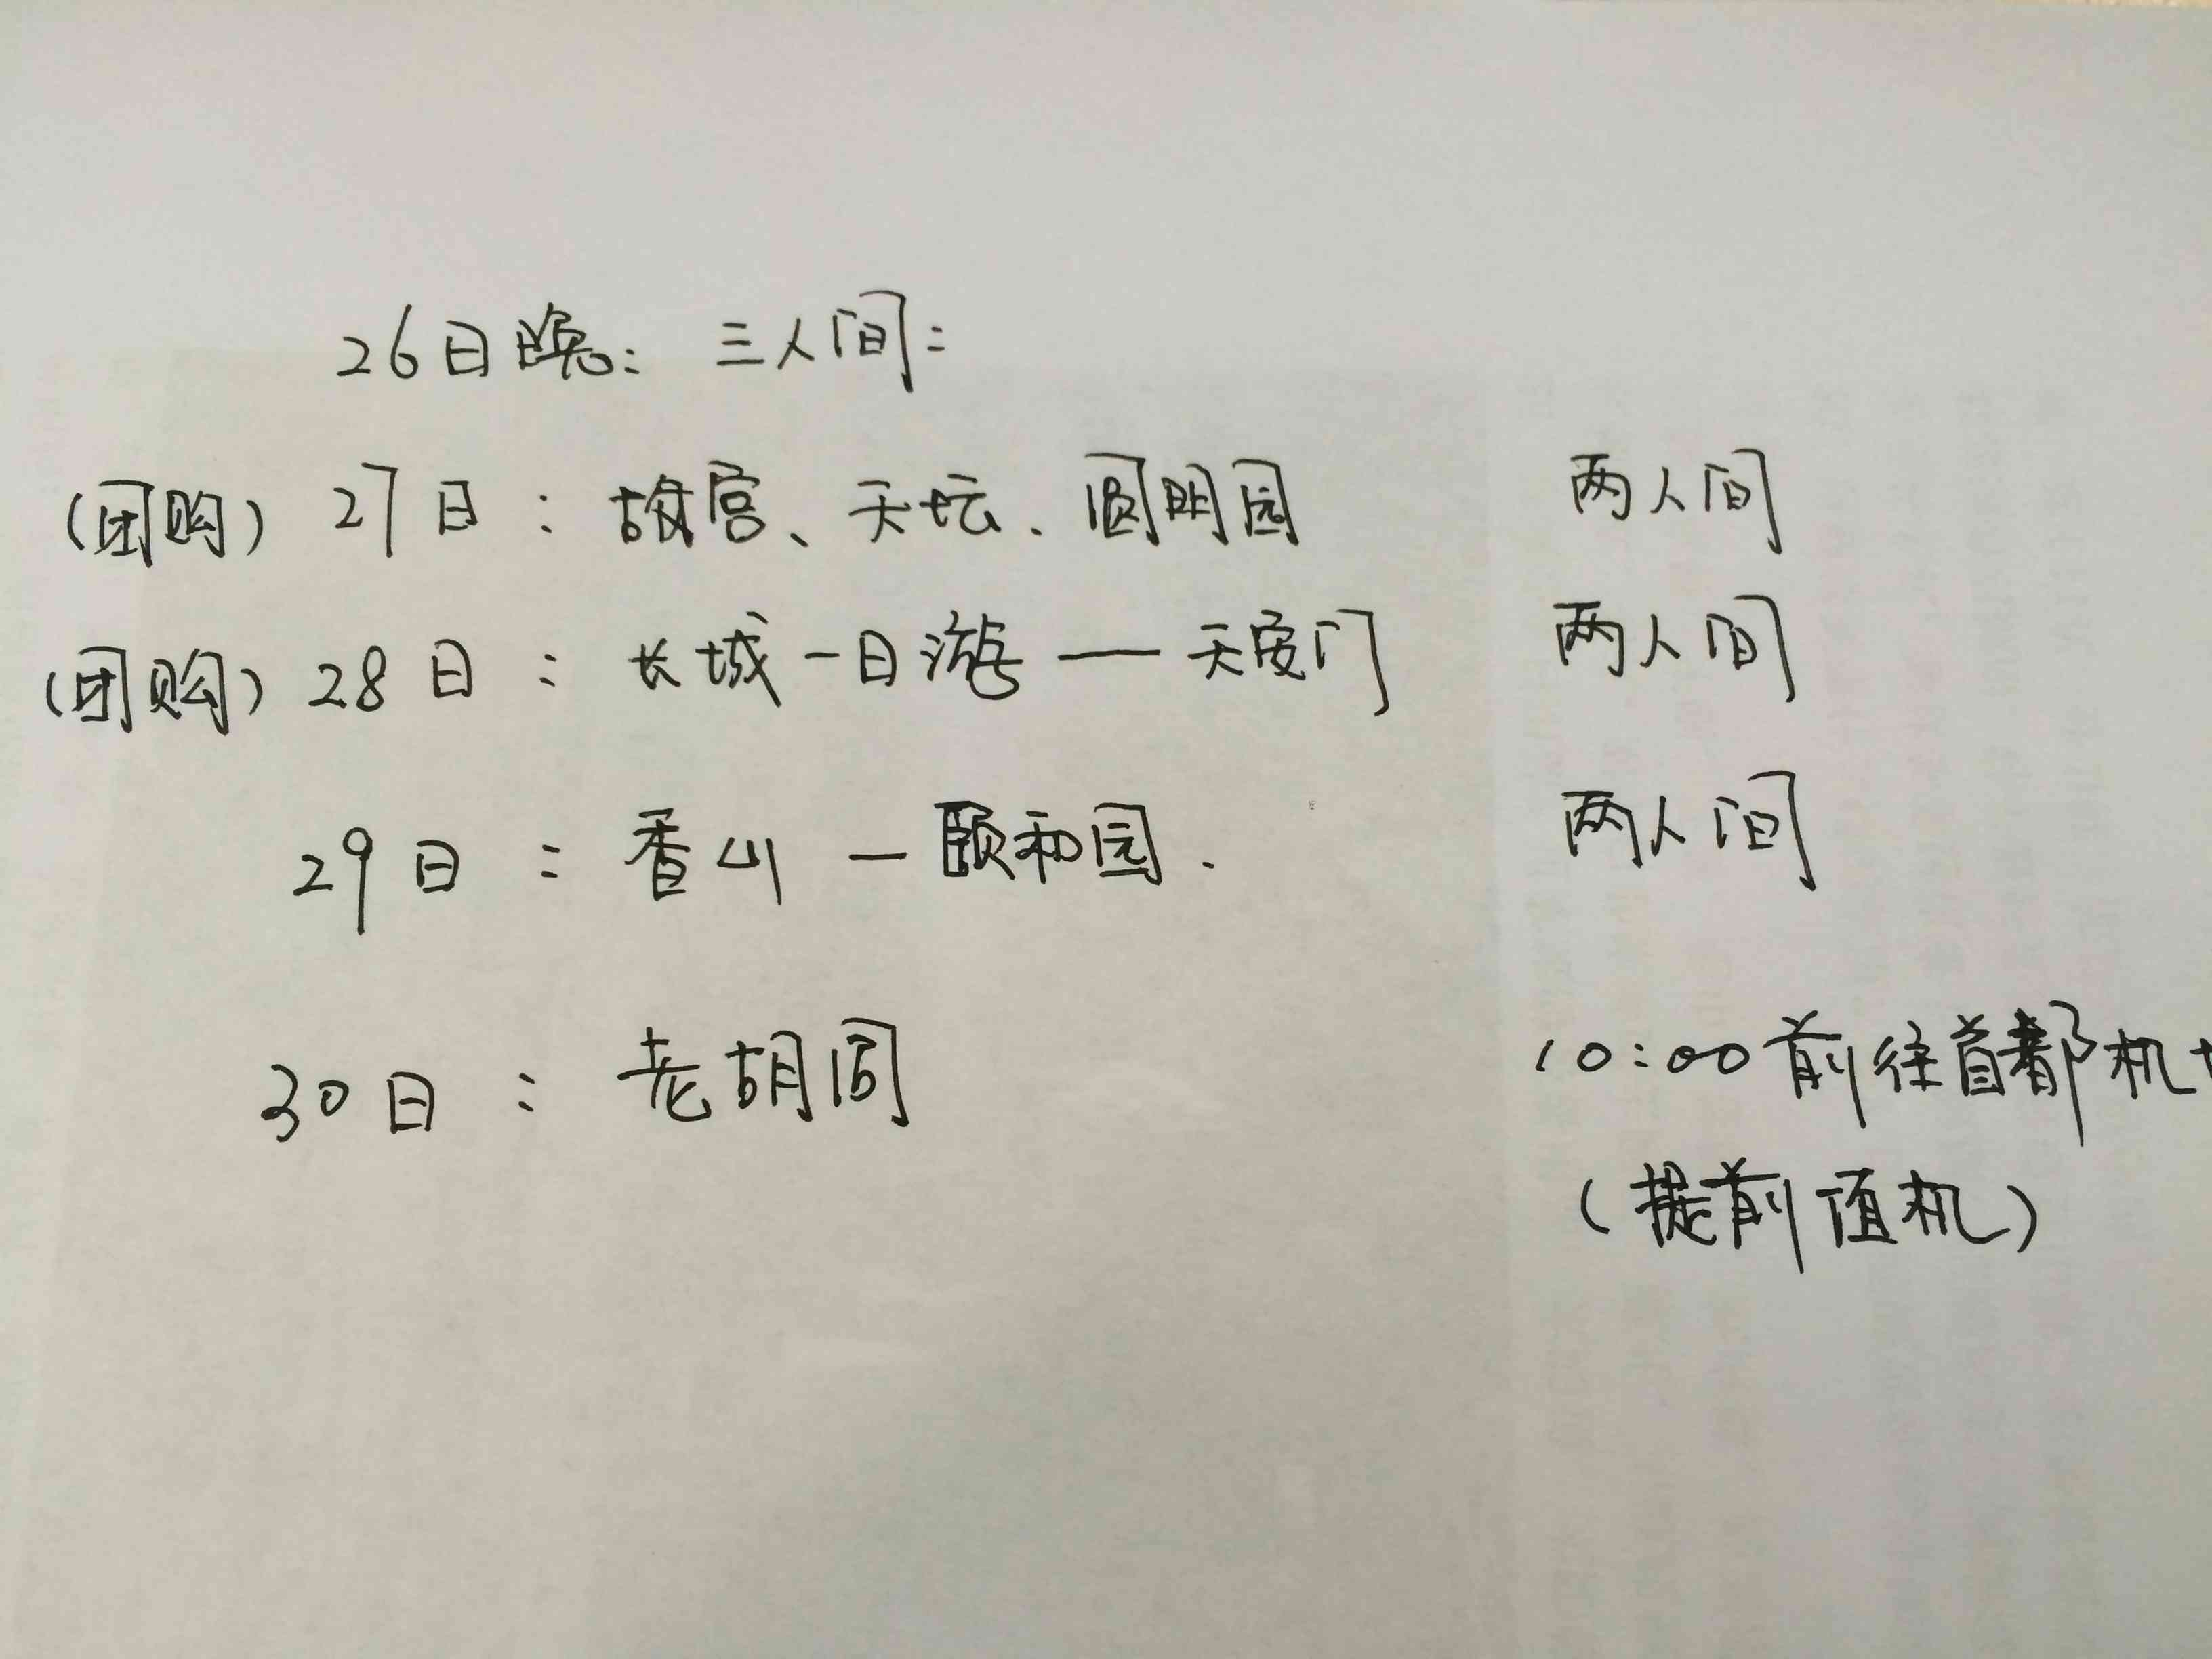 26日晚: 三人间:
(团购) 27日: 故宫、天坛、圆明园 两人间
(团购) 28日: 长城一日游 — 天安门 两人间
29日: 香山 — 颐和园. 两人间
30日: 老胡同 10:00前往首都机
(提前值机)